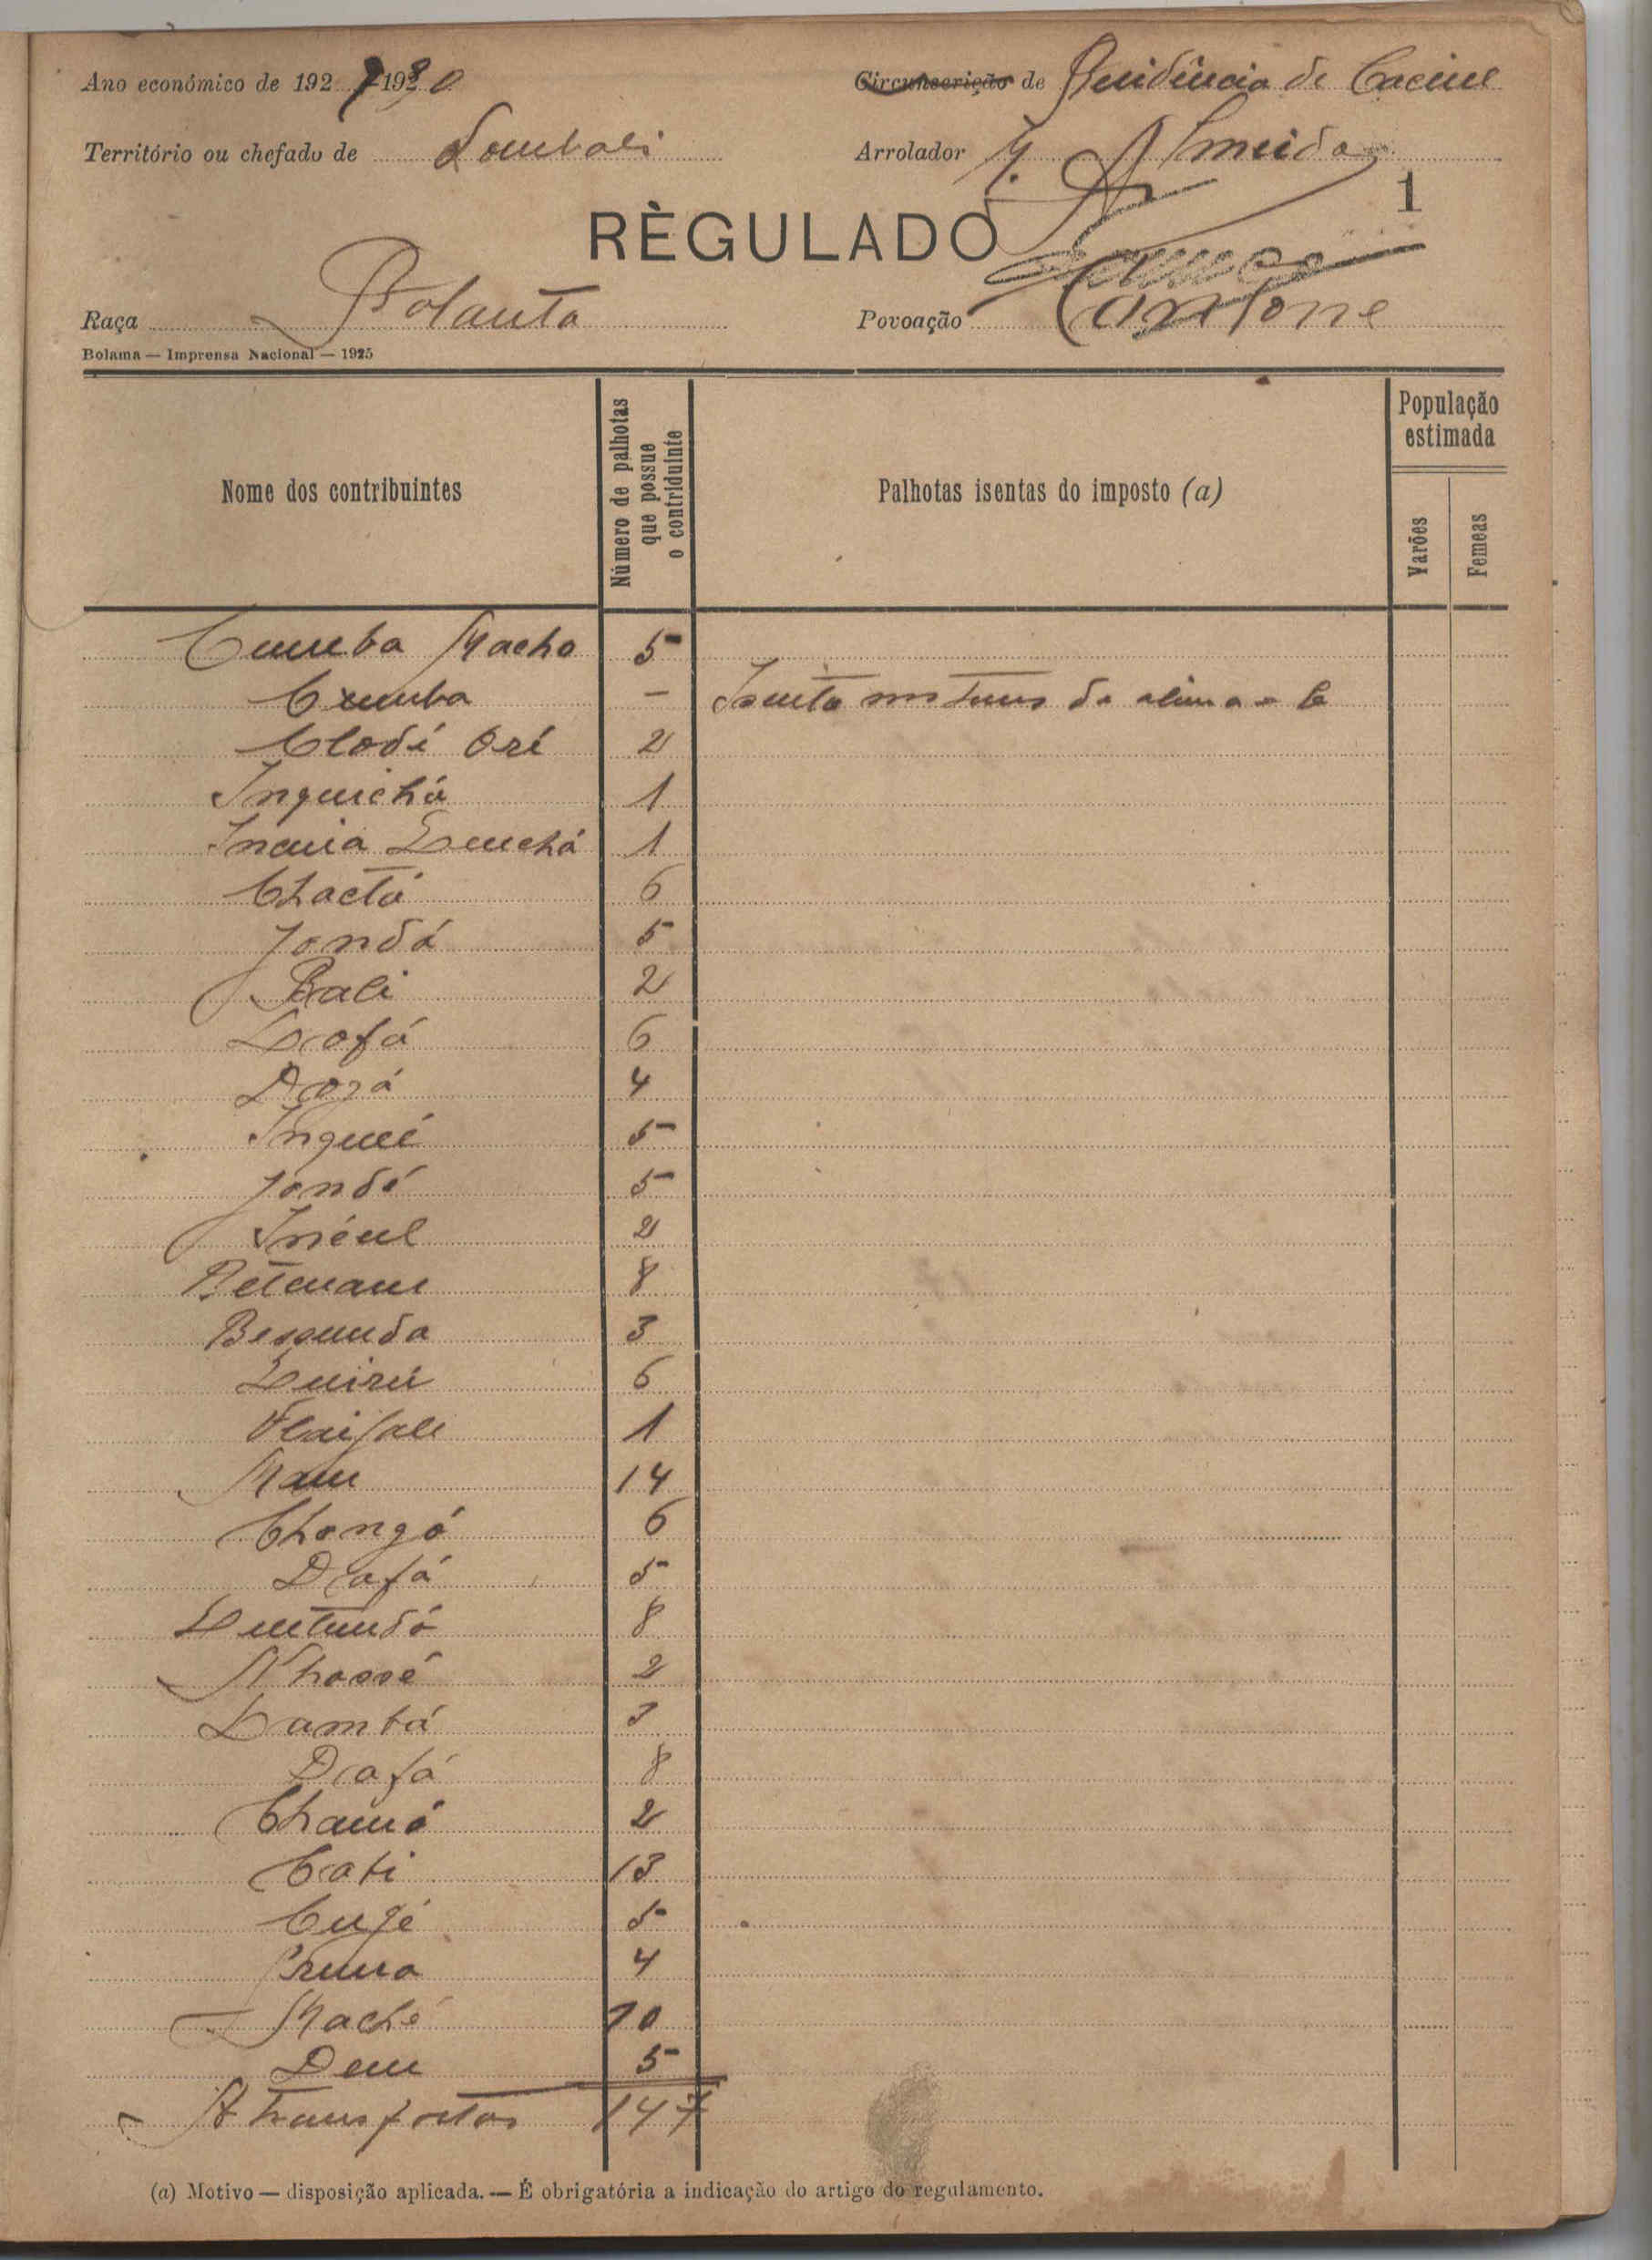 Ano económico de 1929-1930
Circunscrição de Residência de Cacine
Território ou chefado de Tombali
Arrolador J. Almeida
1
RÈGULADO
Raça Balanta
Povoação Cantone
Bolama — Imprensa Nacional — 1925
Nome dos contribuintes
Número de palhotas que possue o contriduinte
Palhotas isentas do imposto (a)
População estimada
Varões
Femeas
Cumba Nacho 5
Cumba - Isenta nos termos da alinea
Clodé Oré 2
Inquichá 1
1
Chactá 6
Jondá 5
Bali 2
Lofá 6
4
Inqué 5
Jondé 5
2
8
Bessunda 3
6
1
Nau 14
Chongó 6
Dafá 5
8
Nhassé 2
Lambá 3
Dafá 8
Chamó 2
Cati 13
Cugé 5
4
Naché 10
5
A transportar 147
(a) Motivo — disposição aplicada. — É obrigatória a indicação do artigo do regulamento.